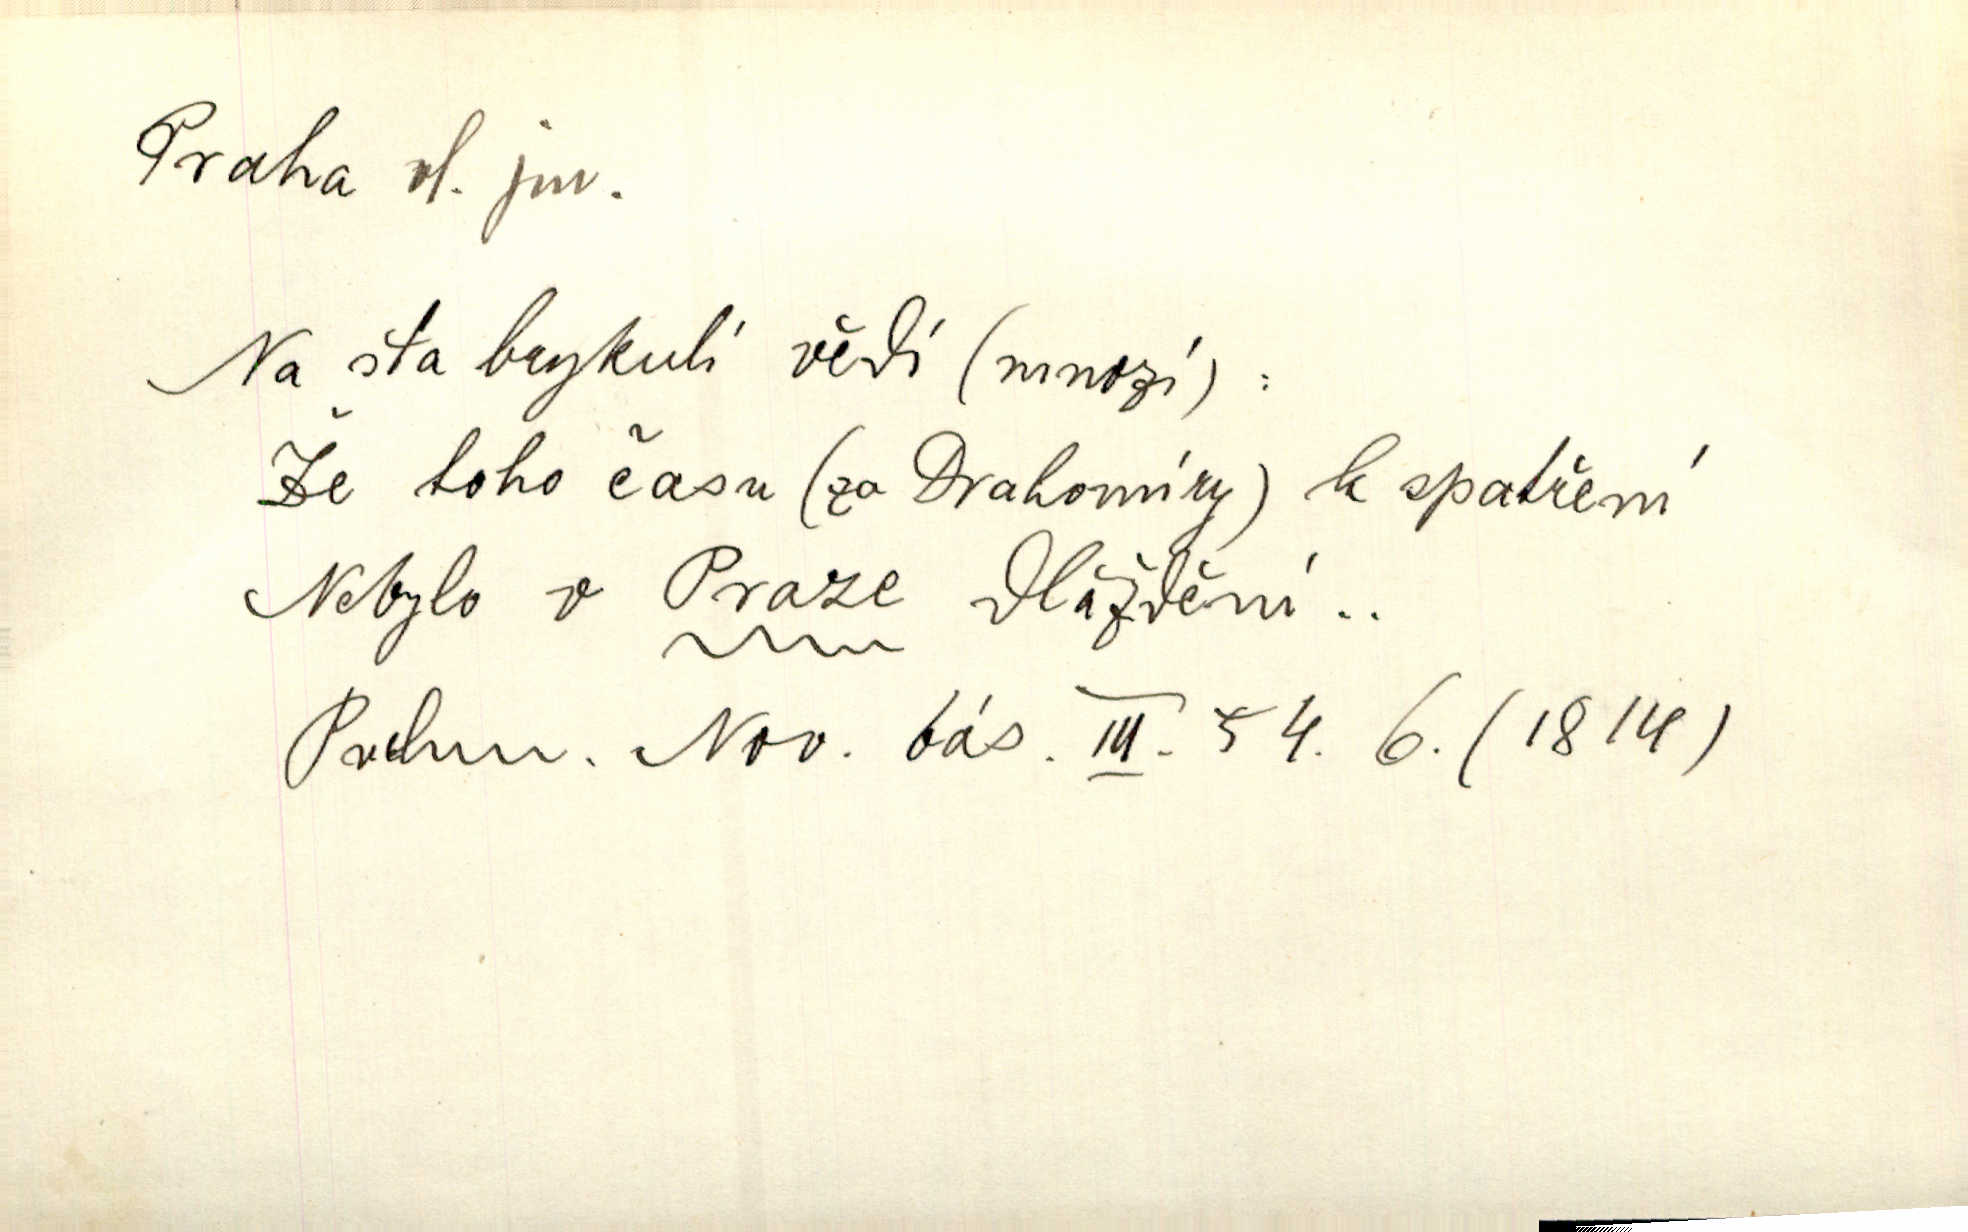 Praha vl. jm.
Na šta brykulí vědí (mnozí):
Že toho času (za Drahomíry) k spatření
Nebylo v Praze dláždění..
Puchm. Nov. bás. III. 54. 6. (1814)